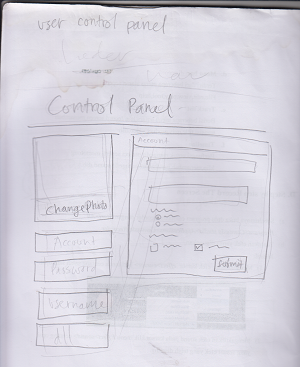 user control panel
Control Panel
Change Photo
Account
Password
Username
All
Account
Submit